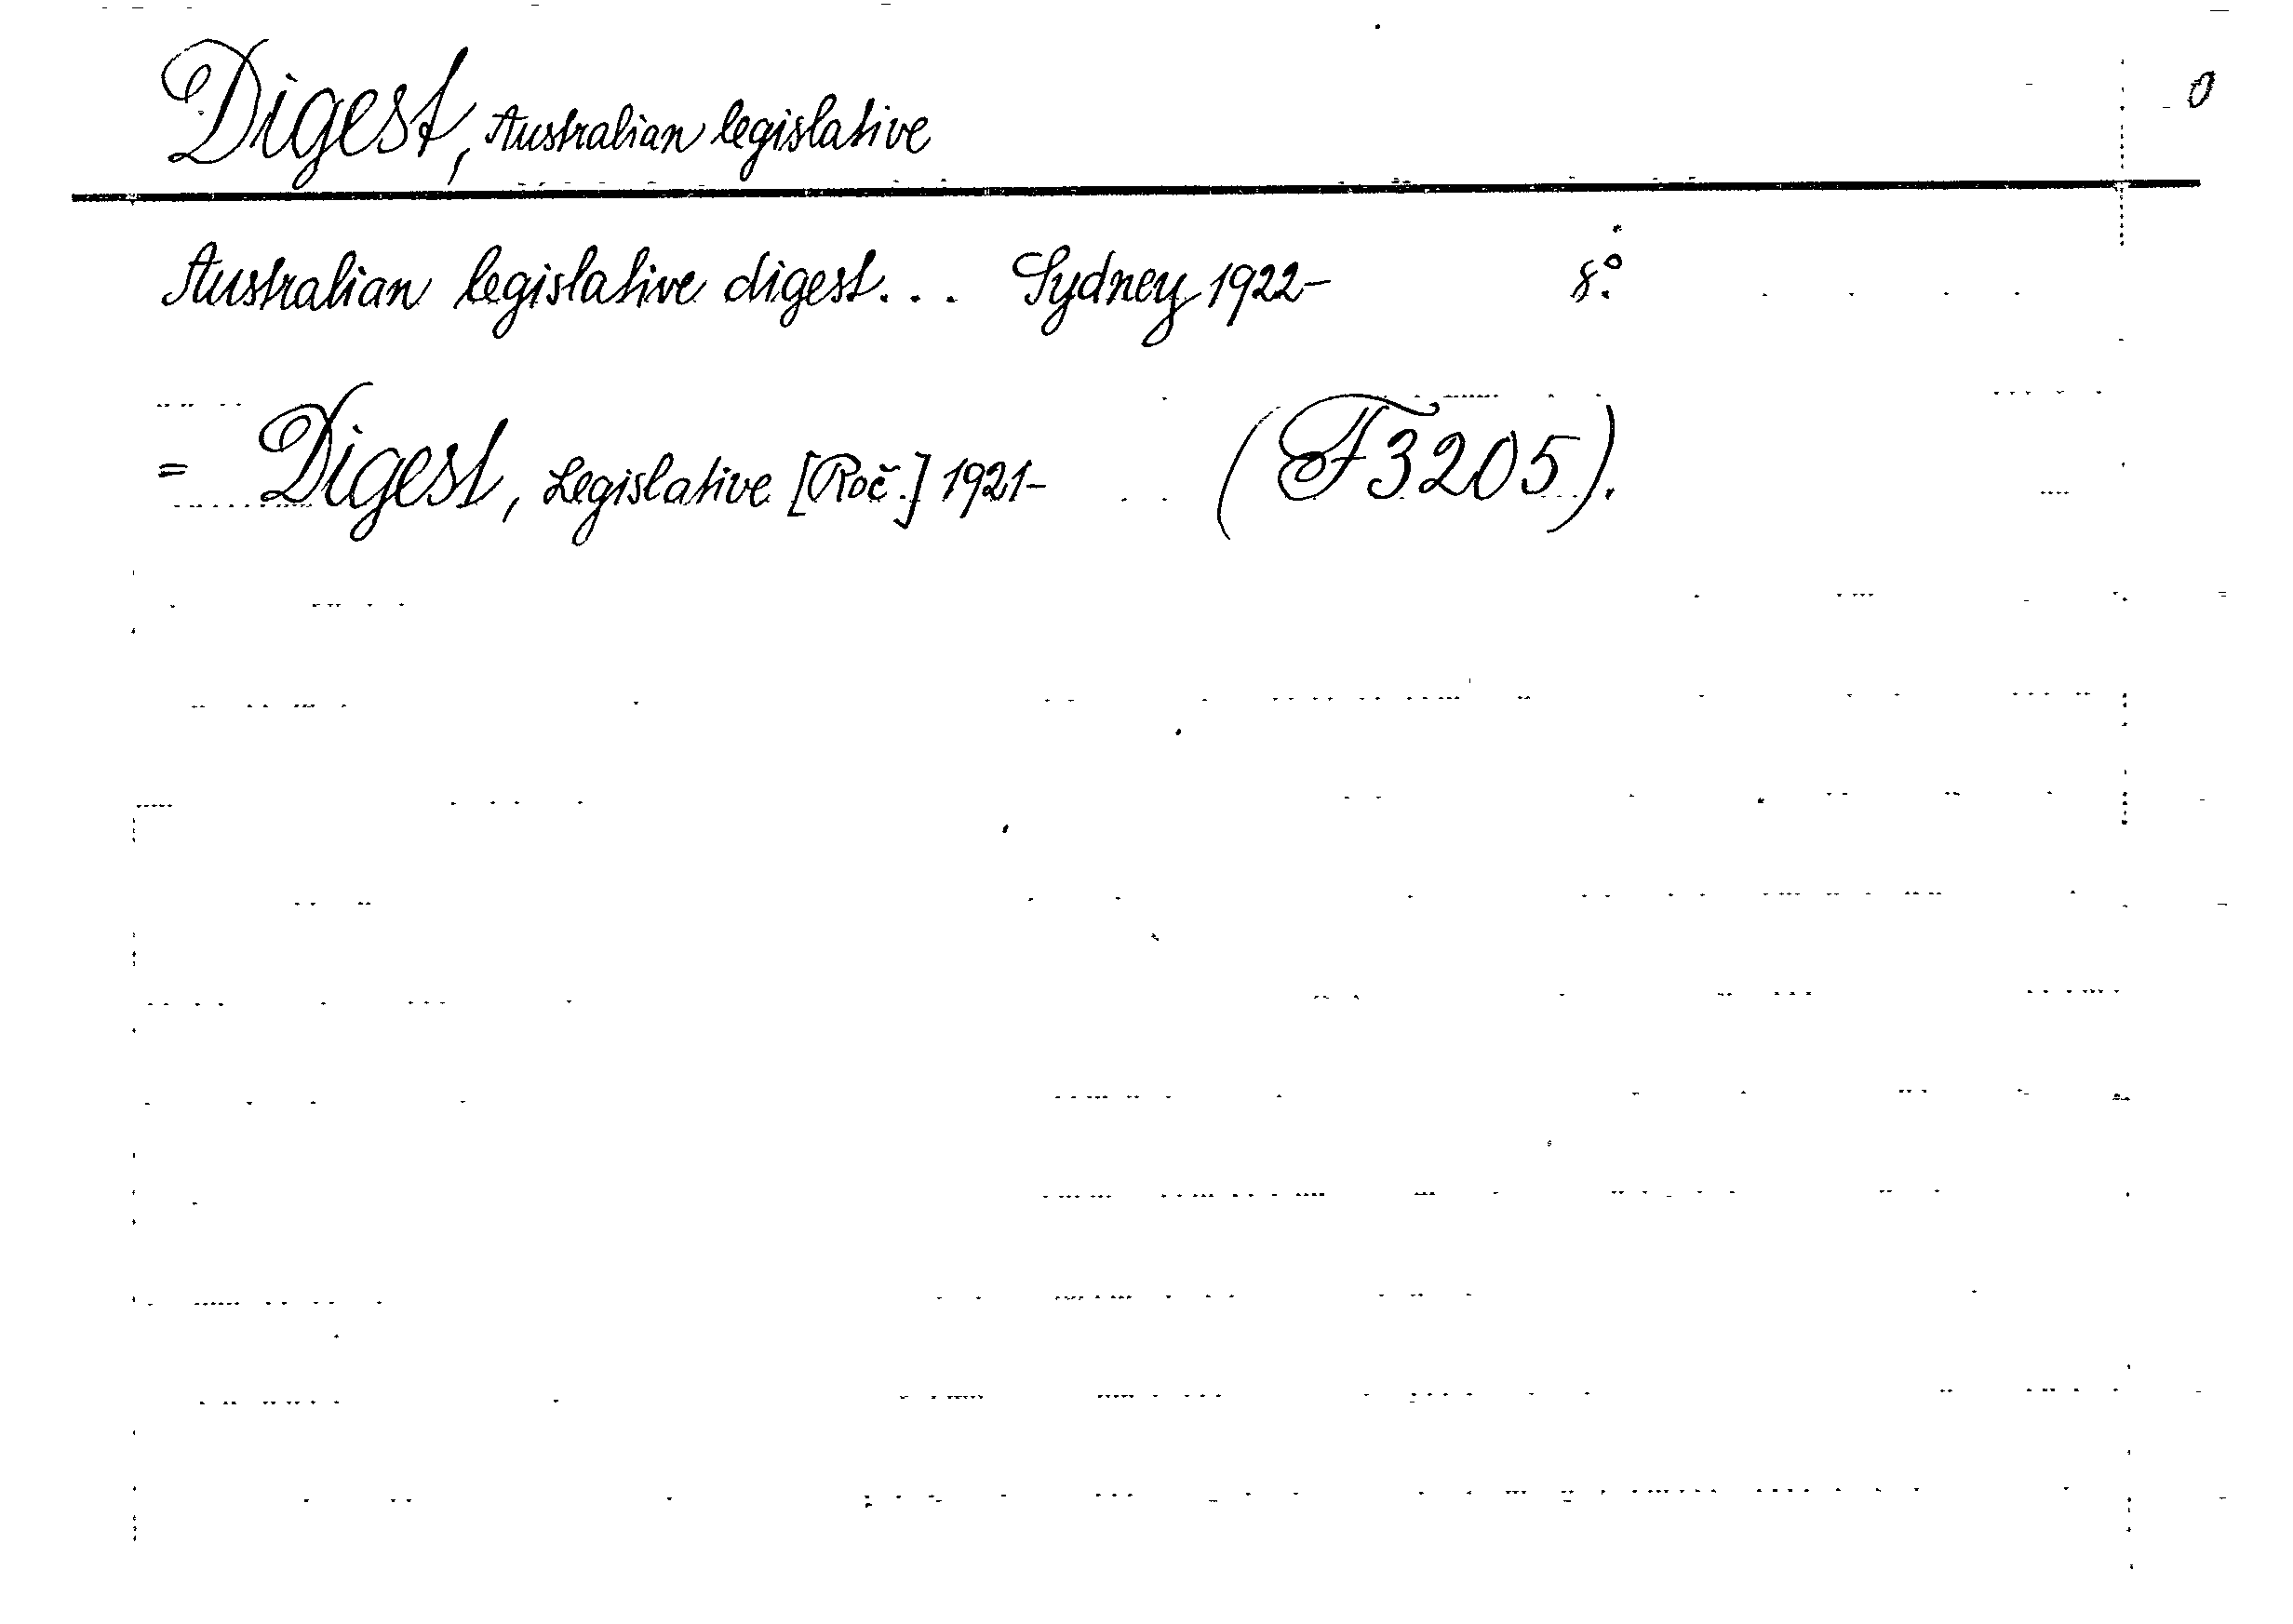 Digest, Australian legislative 0
Australian legislative digest... Sydney 1922- 8°.
= Digest, Legislative [Roč.] 1921- (F 3205).